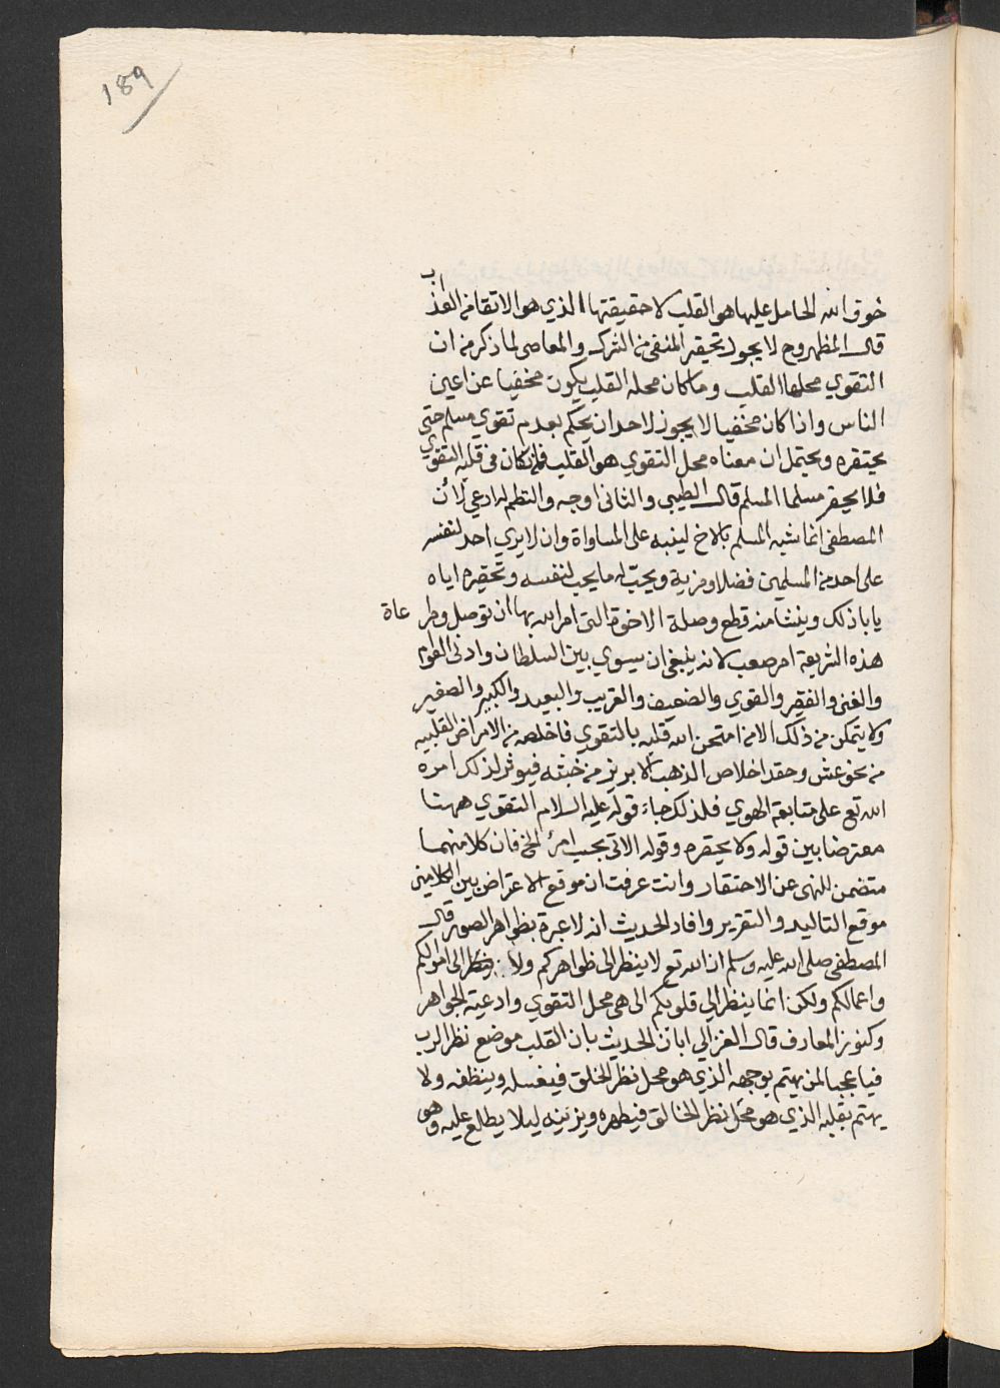 189
خوف الله الحامل عليها هو القلب لا حقيقتها الذي هو الاتقا من العذاب
قال المظهر وح لا يجوز تحقير المتقي من الشرك والمعاصي لما ذكر من ان
التقوي محلها القلب وما كان محله القلب يكون مخفيا عن اعين
الناس واذا كان مخفيا لا يجوز لاحد ان يحكم بعدم تقوي مسلم حتي
يحتقره ويحتمل ان معناه محل التقوي هو القلب فمن كان في قلبه التقوي
فلا يحقر مسلما المسلم قال الطيبي والثاني اوجه والنظم له ادعي لأن
المصطفي انما شبه المسلم بالاخ لينبه علي المساواة وان لا يري احد لنفسه
علي احد من المسلمين فضلا ومزية ويحب له ما يحب لنفسه وتحقيره اياه
يابا ذلك وينشا منه قطع وصلة الاخوة التي امر الله بها ان توصل ومراعاة
هذه الشريعة امر صعب لانه ينبغي ان يسوي بين السلطان وادني العوام
والغني والفقير والقوي والضعيف والقريب والبعيد والكبير والصغير
ولا يتمكن من ذلك الا من امتحن الله قلبه بالتقوي فاخلصه من الامراض القلبيه
من نحو غش وحقد اخلاص الذهب الابريز من خبثه فيوثر لذلك امره
الله تع علي متابعة الهوي فلذلك جاء قوله عليه السلام التقوي ههنا
معترضا بين قوله ولا يحقره وقوله الاتي بحسب امرئ الخ فان كلا منهما
متضمن للنهي عن الاحتقار وانت عرفت ان موقع الاعتراض بين الكلامين
موقع التاكيد والتقرير وافاد الحديث انه لا عبرة بظواهر الصور قال
المصطفي صلي الله عليه وسلم ان الله تع لا ينظر الي ظواهركم ولا ينظر الي اموالكم
واعمالكم ولكن انما ينظر الي قلوبكم الي هي محل التقوي وادعية الجواهر
وكنوز المعارف قال الغزالي ابان الحديث بان القلب موضع نظر الرب
فيا عجبا لمن يهتم بوجهه الذي هو محل نظر الخلق فيغسله وينظفه ولا
يهتم بقلبه الذي هو محل نظر الخالق فيطهره ويزينه ليلا يطلع عليه وهو